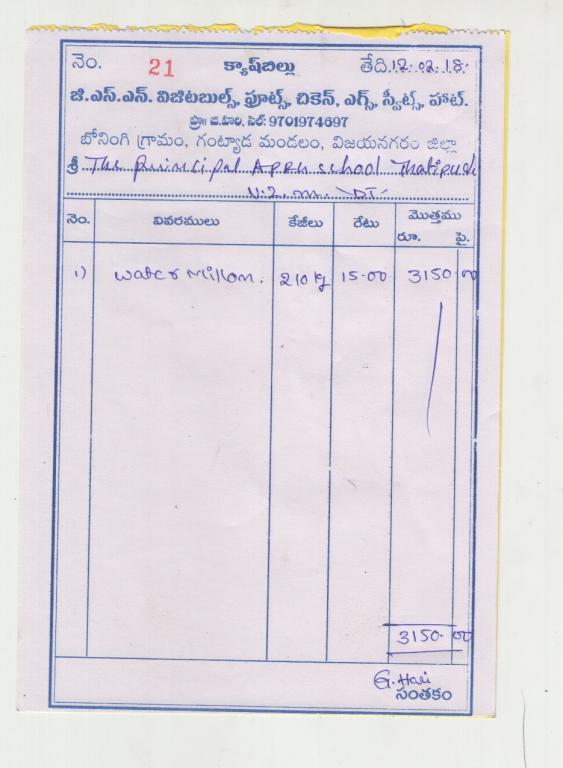 నెం. 21 క్యాష్‌బిల్లు తేది.12.02.18.
జి.ఎస్.ఎన్. విజిటబుల్స్, ఫ్రూట్స్, చికెన్, ఎగ్స్, స్వీట్స్, హాట్.
ప్రొ॥ జి.హరి, సెల్: 9701974697
బోనంగి గ్రామం, గంట్యాడ మండలం, విజయనగరం జిల్లా
శ్రీ The Principal APRU school Thatipudi
V.Z.M. DT
నెం. వివరములు కేజీలు రేటు మొత్తము
రూ. పై.
1) Water Millon. 210 kg 15-00 3150 00
3150. 00
G. Hari
సంతకం